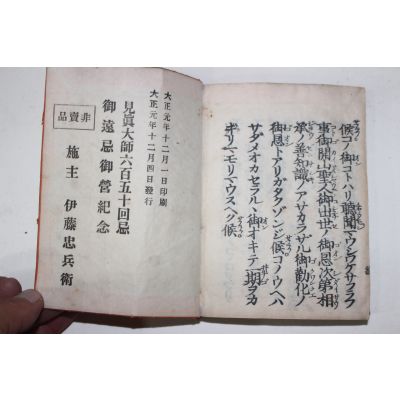 候コノ御コトハリ聴聞マウシワケサフラフ
事御開山聖人御出世ノ御恩次第相
承ノ善知識ノアサカラサル御勧化ノ
御恩トアリガタクゾンジ候コノウヘハ
サダメオカセラルヽ御オキテ一期ヲカ
ギリマモリマウスヘク候
大正元年十二月一日印刷
大正元年十二月四日發行
見眞大師六百五十回忌
御遠忌御營紀念
非賣品
施主 伊藤忠兵衛